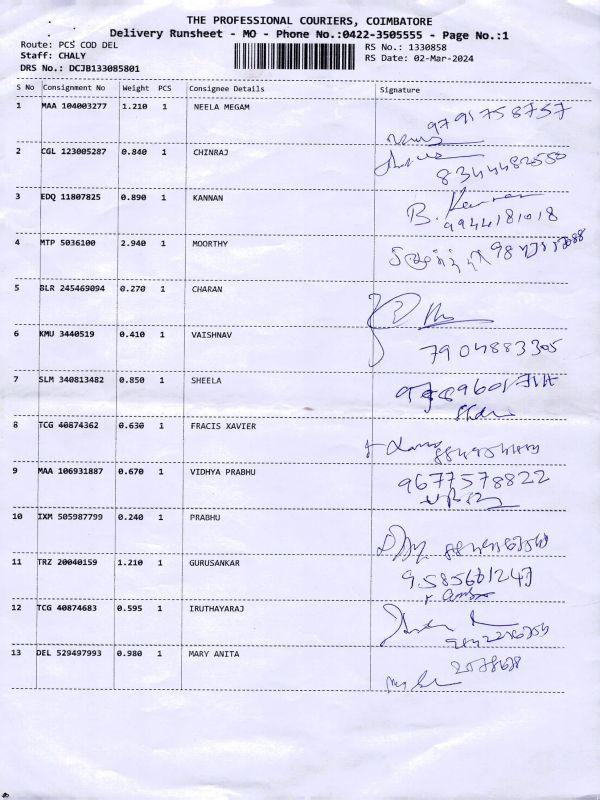 THE PROFESSIONAL COURIERS, COIMBATORE
Delivery Runsheet - MO - Phone No.:0422-3505555 - Page No.:1
Route: PCS COD DEL
Staff: CHALY
DRS No.: DCJB133085801
RS No.: 1330858
RS Date: 02-Mar-2024
S No Consignment No Weight PCS Consignee Details Signature
1 MAA 104003277 1.210 1 NEELA MEGAM 9791758757
2 CGL 123005287 0.840 1 CHINRAJ 8344482550
3 EDQ 11807825 0.890 1 KANNAN B. Kannan
9944181018
4 MTP 5036100 2.940 1 MOORTHY
5 BLR 245469094 0.270 1 CHARAN
6 KMU 3440519 0.410 1 VAISHNAV 7904883305
7 SLM 340813482 0.850 1 SHEELA
8 TCG 40874362 0.630 1 FRACIS XAVIER
9 MAA 106931887 0.670 1 VIDHYA PRABHU 9677578822
10 IXM 505987799 0.240 1 PRABHU
11 TRZ 20040159 1.210 1 GURUSANKAR 9585661247
12 TCG 40874683 0.595 1 IRUTHAYARAJ
13 DEL 529497993 0.980 1 MARY ANITA